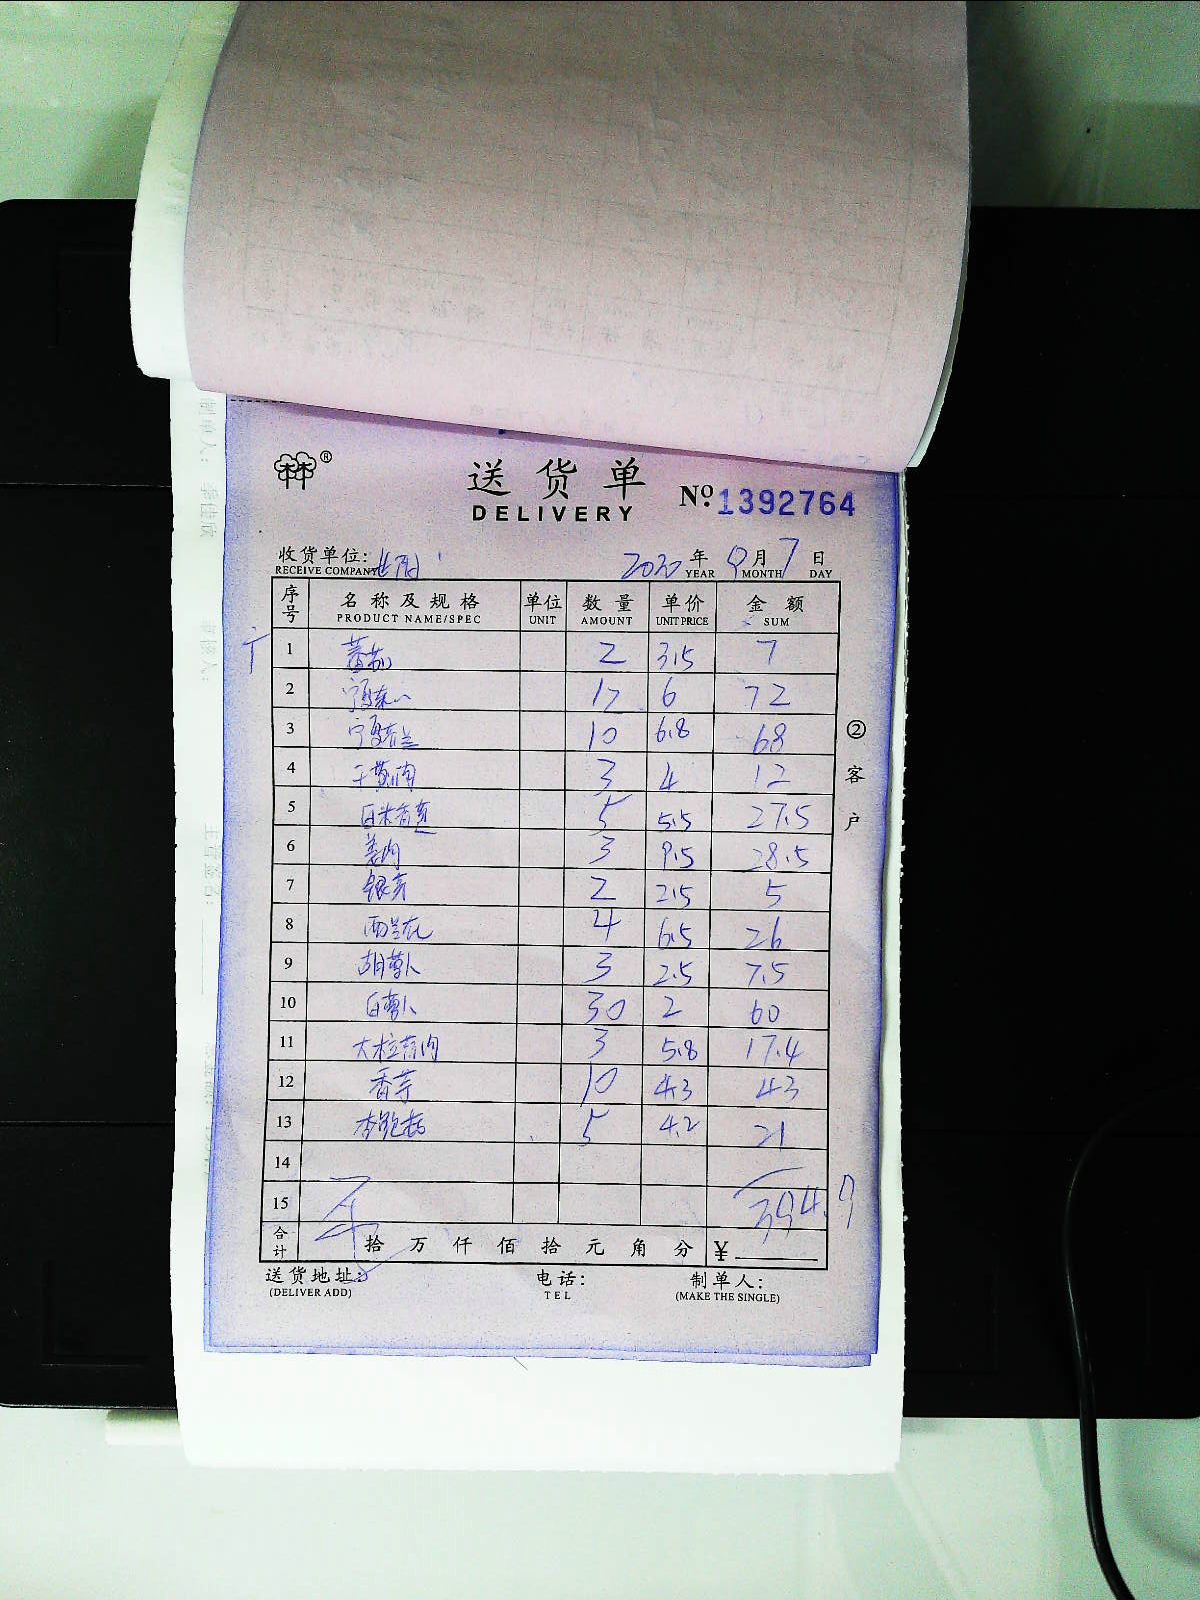 林林®
送货单
DELIVERY
Nº 1392764
收货单位:
RECEIVE COMPANY
2020 年 9 月 7 日
YEAR MONTH DAY
序号 名称及规格 单位 数量 单价 金额
PRODUCT NAME/SPEC UNIT AMOUNT UNIT PRICE SUM
1 蕃茄 2 3.5 7
2 宁夏菜心 12 6 72
3 宁夏芥兰 10 6.8 68
4 干葱肉 3 4 12
5 白米苋 5 5.5 27.5
6 姜肉 3 9.5 28.5
7 银芽 2 2.5 5
8 西兰花 4 6.5 26
9 胡萝卜 3 2.5 7.5
10 白萝卜 30 2 60
11 大粒蒜肉 3 5.8 17.4
12 香芋 10 4.3 43
13 杏鲍菇 5 4.2 21
14
15 394.9
合计 拾 万 仟 佰 拾 元 角 分 ¥
送货地址: 电话: 制单人:
(DELIVER ADD) TEL (MAKE THE SINGLE)
②客户